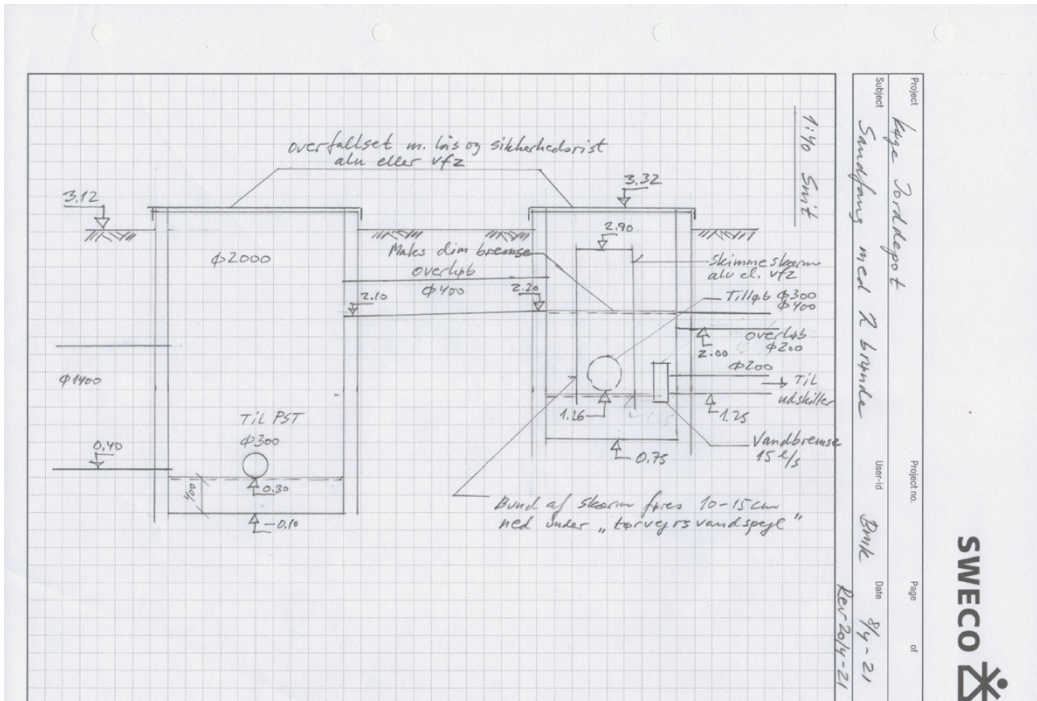 Project
Køge Jorddepot
Subject
Sandfang med 2 brønde
Project no.
User-id
Bmk
Page
of
Date
8/4-21
Rev 20/4-21
SWECO
1:40 Snit
overfaldset m. lås og sikkerhedsrist
alu eller vfz
3.12
3.32
Φ2000
Maks dim bremse
overløb
Φ400
2.10
2.20
2.90
Skimmeskærm
alu el. vfz
Tilløb Φ300
Φ400
overløb
Φ200
2.00
Φ200
Til
udskiller
1.25
1.26
Vandbremse
15 l/s
0.75
Φ1400
0.40
Til PST
Φ300
0.30
400
-0.10
Bund af skærm føres 10-15cm
ned under "tørvejrsvandspejl"